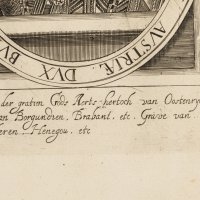 AVSTRIÆ, DVX BV
der gratien Gods Aerts-hertoch van Oostenry
an Borgundien, Brabant, etc. Grave van
eren Henegou, etc